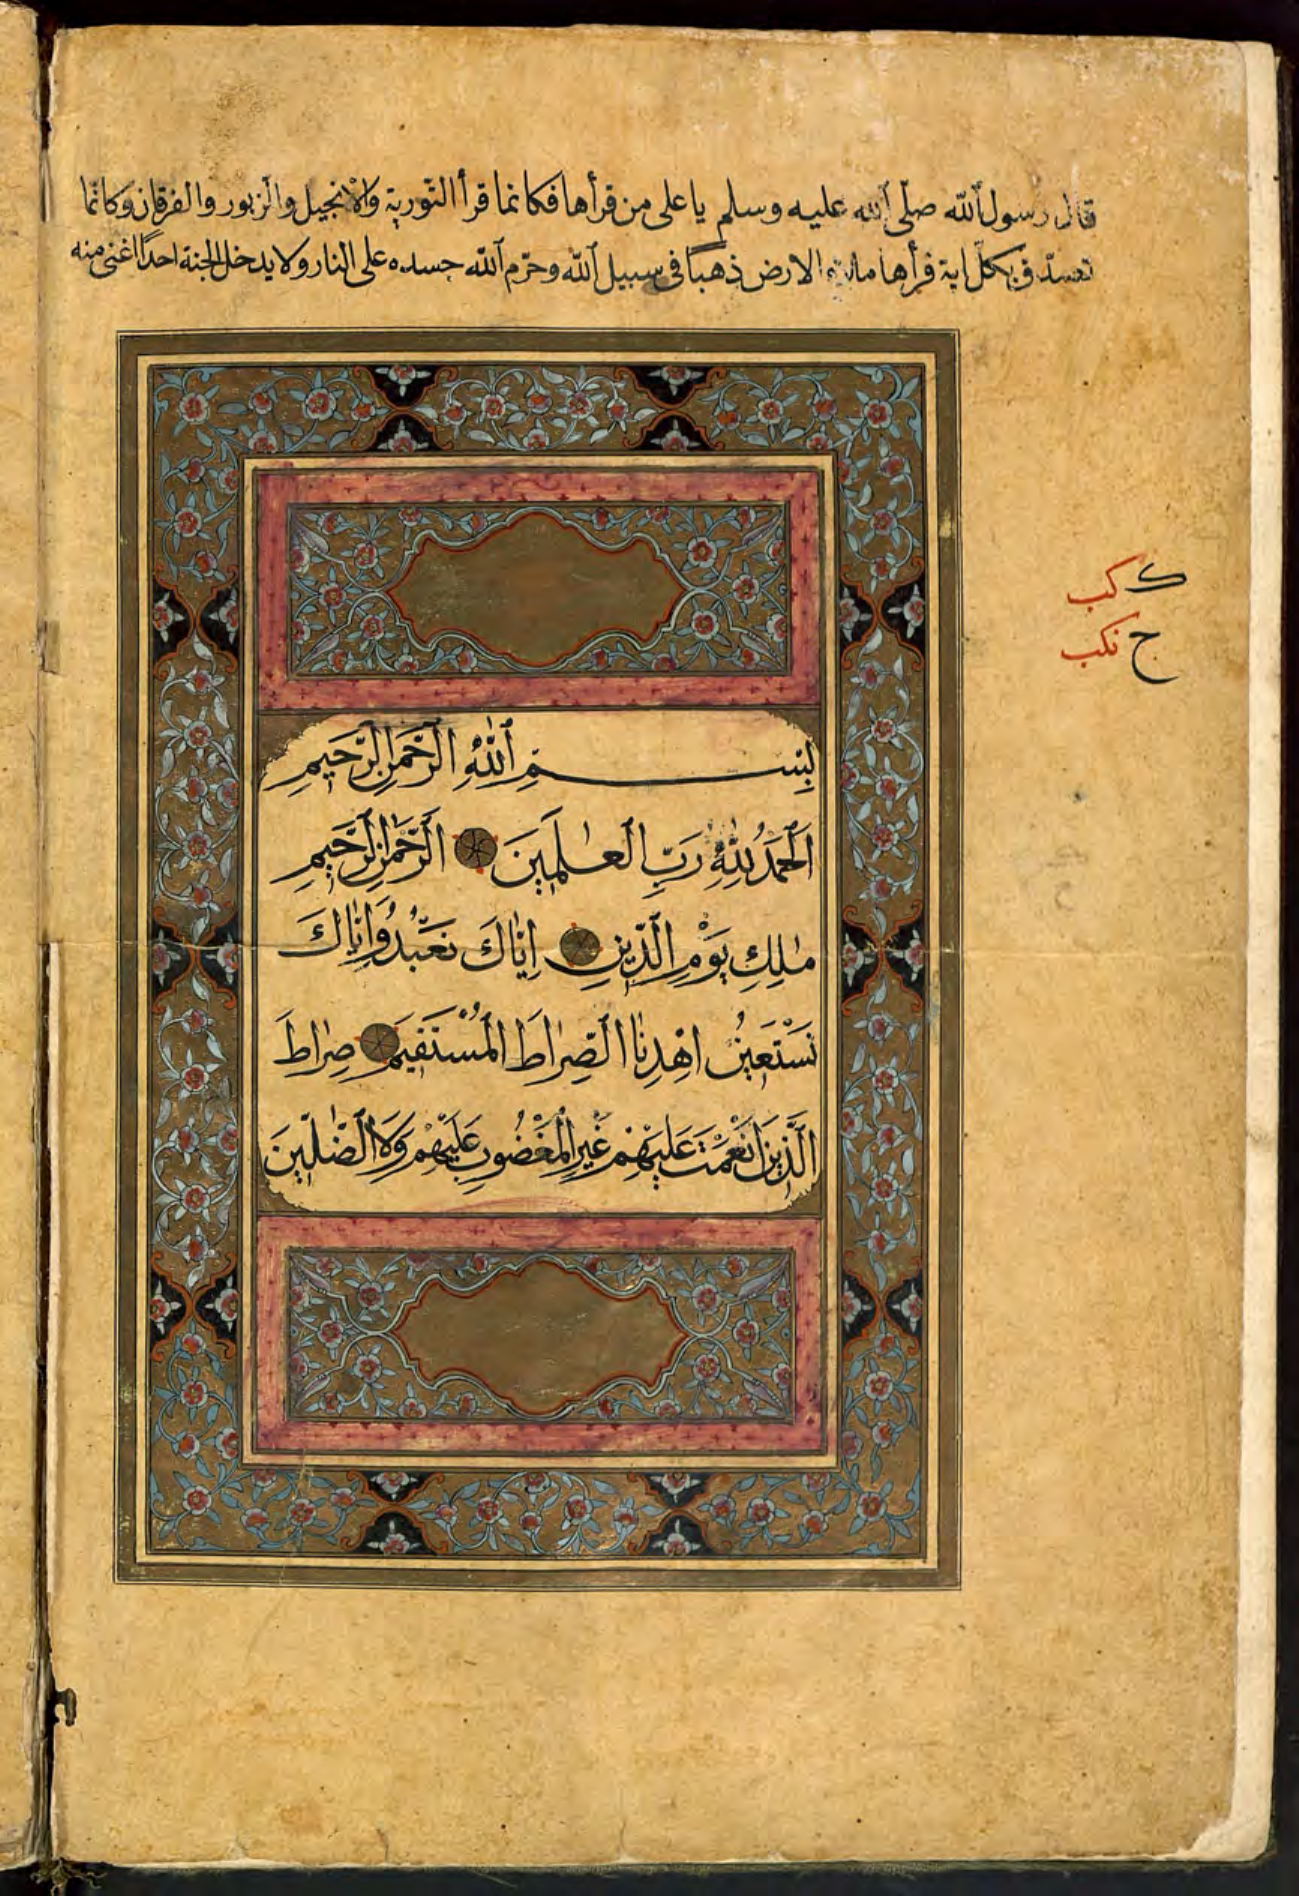 قال رسول الله صلّى الله عليه وسلم يا على من قرأها فكانما قرأ التّورية والانجيل والزبور والفرقان وكانما
تصدّق بكلّ اية قرأها ملاء الارض ذهباً فى سبيل الله وحرّم الله جسده على النار ولا يدخل الجنة احداً اغنى منه
ك كب
ج نكب
بِسْمِ اللّٰهِ الرَّحْمٰنِ الرَّحِيمِ
اَلْحَمْدُ لِلّٰهِ رَبِّ الْعٰلَمِينَ الرَّحْمٰنِ الرَّحِيمِ
مٰلِكِ يَوْمِ الدِّينِ اِيَّاكَ نَعْبُدُ وَاِيَّاكَ
نَسْتَعِينُ اهْدِنَا الصِّرَاطَ الْمُسْتَقِيمَ صِرَاطَ
الَّذِينَ اَنْعَمْتَ عَلَيْهِمْ غَيْرِ الْمَغْضُوبِ عَلَيْهِمْ وَلَا الضَّالِّينَ